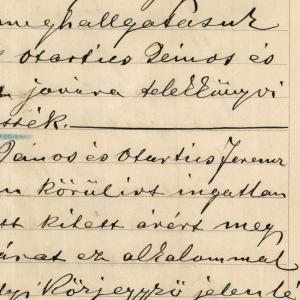 meghallgatásuk
Otartics János és
javára telekkönyvi
essék.
János és Otartics Ferencz
n körülirt ingatlan
tt kitett árért meg
ez alkalommal
Körjegyző jelenlé